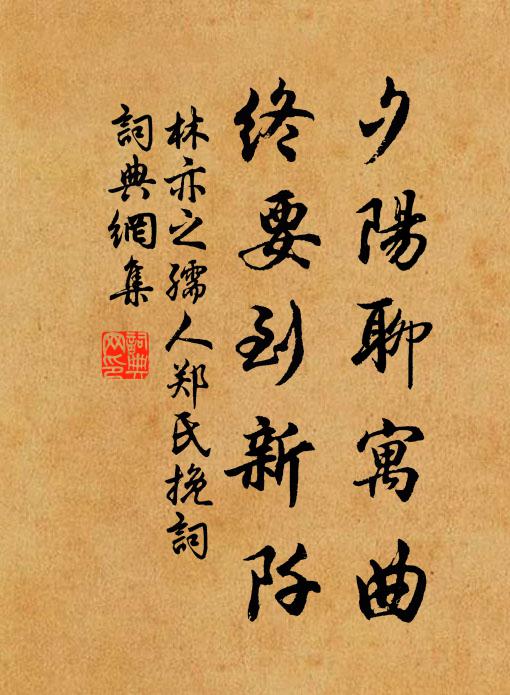 夕陽聊寓曲
終要到新阡
林亦之孺人郑氏挽詞
詞典網集
詞典
网印